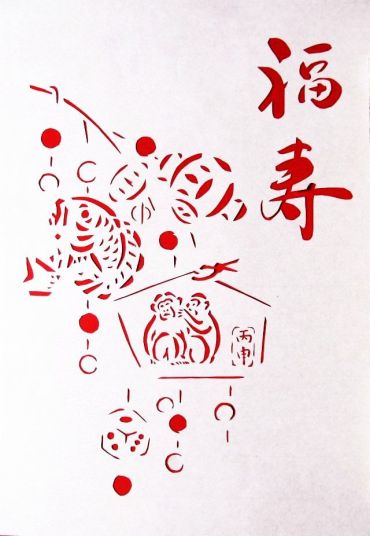 福寿
丙申